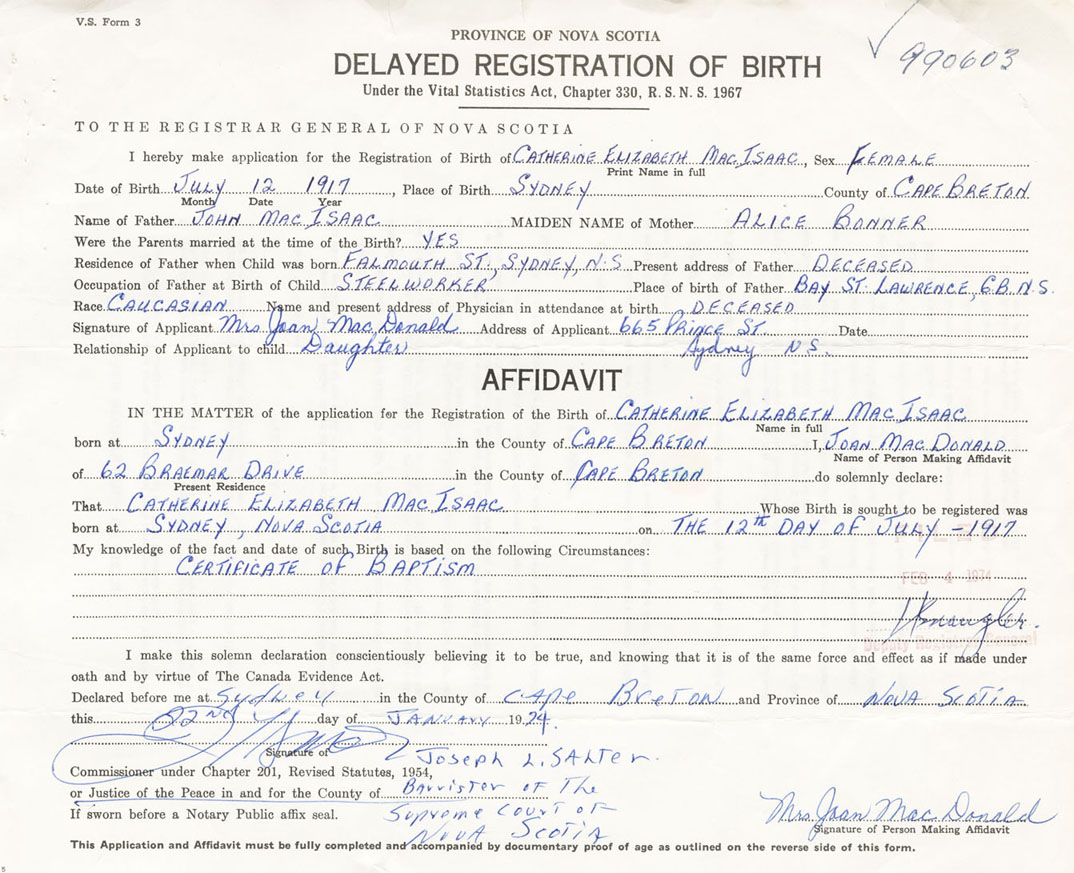 V.S. Form 3
990603
PROVINCE OF NOVA SCOTIA
DELAYED REGISTRATION OF BIRTH
Under the Vital Statistics Act, Chapter 330, R. S. N. S. 1967
TO THE REGISTRAR GENERAL OF NOVA SCOTIA
I hereby make application for the Registration of Birth of CATHERINE ELIZABETH MAC ISAAC, Sex FEMALE
Print Name in full
Date of Birth JULY 12 1917, Place of Birth SYDNEY County of CAPE BRETON
Month Date Year
Name of Father JOHN MAC ISAAC MAIDEN NAME of Mother ALICE BONNER
Were the Parents married at the time of the Birth? YES
Residence of Father when Child was born FALMOUTH ST., SYDNEY, N.S Present address of Father DECEASED
Occupation of Father at Birth of Child STEELWORKER Place of birth of Father BAY ST. LAWRENCE, C.B. N.S.
Race CAUCASIAN Name and present address of Physician in attendance at birth DECEASED
Signature of Applicant Mrs Joan Mac Donald Address of Applicant 665 Prince St. Date
Relationship of Applicant to child Daughter Sydney N S.
AFFIDAVIT
IN THE MATTER of the application for the Registration of the Birth of CATHERINE ELIZABETH MAC ISAAC
Name in full
born at SYDNEY in the County of CAPE BRETON I, JOAN MAC DONALD
Name of Person Making Affidavit
of 62 BRAEMAR DRIVE in the County of CAPE BRETON do solemnly declare:
Present Residence
That CATHERINE ELIZABETH MAC ISAAC Whose Birth is sought to be registered was
born at SYDNEY, NOVA SCOTIA on THE 12th DAY OF JULY - 1917
My knowledge of the fact and date of such Birth is based on the following Circumstances:
CERTIFICATE OF BAPTISM
FEB 4 1974
Deputy Registrar General
I make this solemn declaration conscientiously believing it to be true, and knowing that it is of the same force and effect as if made under
oath and by virtue of The Canada Evidence Act.
Declared before me at Sydney in the County of CAPE BRETON and Province of NOVA SCOTIA
this 22nd day of JANUARY 1974.
Signature of JOSEPH L. SALTER.
Commissioner under Chapter 201, Revised Statutes, 1954,
or Justice of the Peace in and for the County of Barrister of The
If sworn before a Notary Public affix seal. Supreme Court of
NOVA SCOTIA
Mrs. Joan Mac Donald
Signature of Person Making Affidavit
This Application and Affidavit must be fully completed and accompanied by documentary proof of age as outlined on the reverse side of this form.